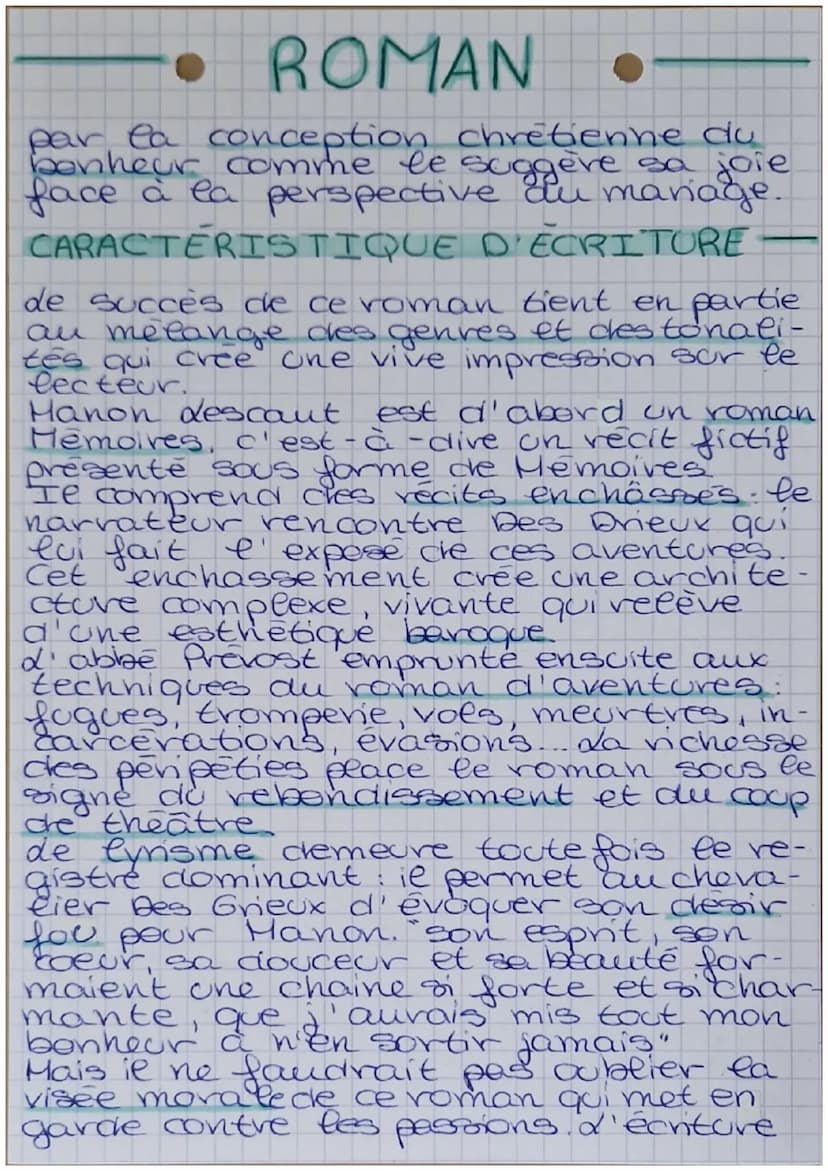 ROMAN
par la conception chrétienne du
bonheur comme le suggère sa joie
face à la perspective du mariage.
CARACTÉRISTIQUE D'ÉCRITURE
Le succès de ce roman tient en partie
au mélange des genres et des tonali-
tés qui crée une vive impression sur le
lecteur.
Manon Lescaut est d'abord un roman
Mémoires, c'est-à-dire un récit fictif
présenté sous forme de Mémoires
Il comprend des récits enchâssés. le
narrateur rencontre Des Drieux qui
lui fait l'exposé de ces aventures.
Cet enchassement crée une archite-
cture complexe, vivante qui relève
d'une esthétique baroque.
L'abbé Prévost emprunte ensuite aux
techniques du roman d'aventures :
fugues, tromperie, vols, meurtres, in-
carcérations, évasions... La richesse
des péripéties place le roman sous le
signe du rebondissement et du coup
de théâtre.
Le lyrisme demeure toutefois le re-
gistre dominant : il permet au cheva-
lier Des Grieux d'évoquer son désir
fou pour Manon. "son esprit, son
coeur, sa douceur et sa beauté for-
maient une chaine si forte et si char-
mante, que j'aurais mis tout mon
bonheur à n'en sortir jamais"
Mais il ne faudrait pas oublier la
visée morale de ce roman qui met en
garde contre les passions. L'écriture